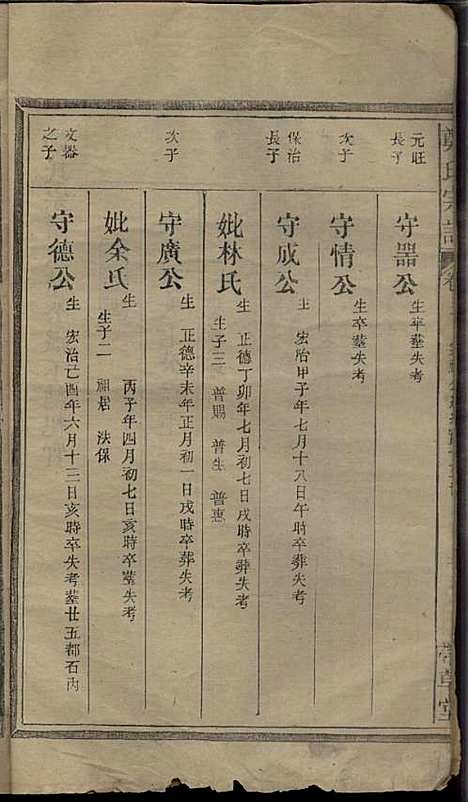 鄭氏宗譜
元旺長子
守器公
生卒塟失考
次子
守情公
生卒塟失考
保治長子
守成公
生 宏治甲子年七月十八日午時卒葬失考
妣林氏
生 正德丁卯年七月初七日戌時卒葬失考
生子三 普賜 普生 普惠
次子
守廣公
生 正德辛未年正月初一日戌時卒葬失考
妣余氏
生 丙子年四月初七日亥時卒塟失考
生子二 法保
文器之子
守德公
生 宏治己酉年六月十三日亥時卒失考塟廿五都石内